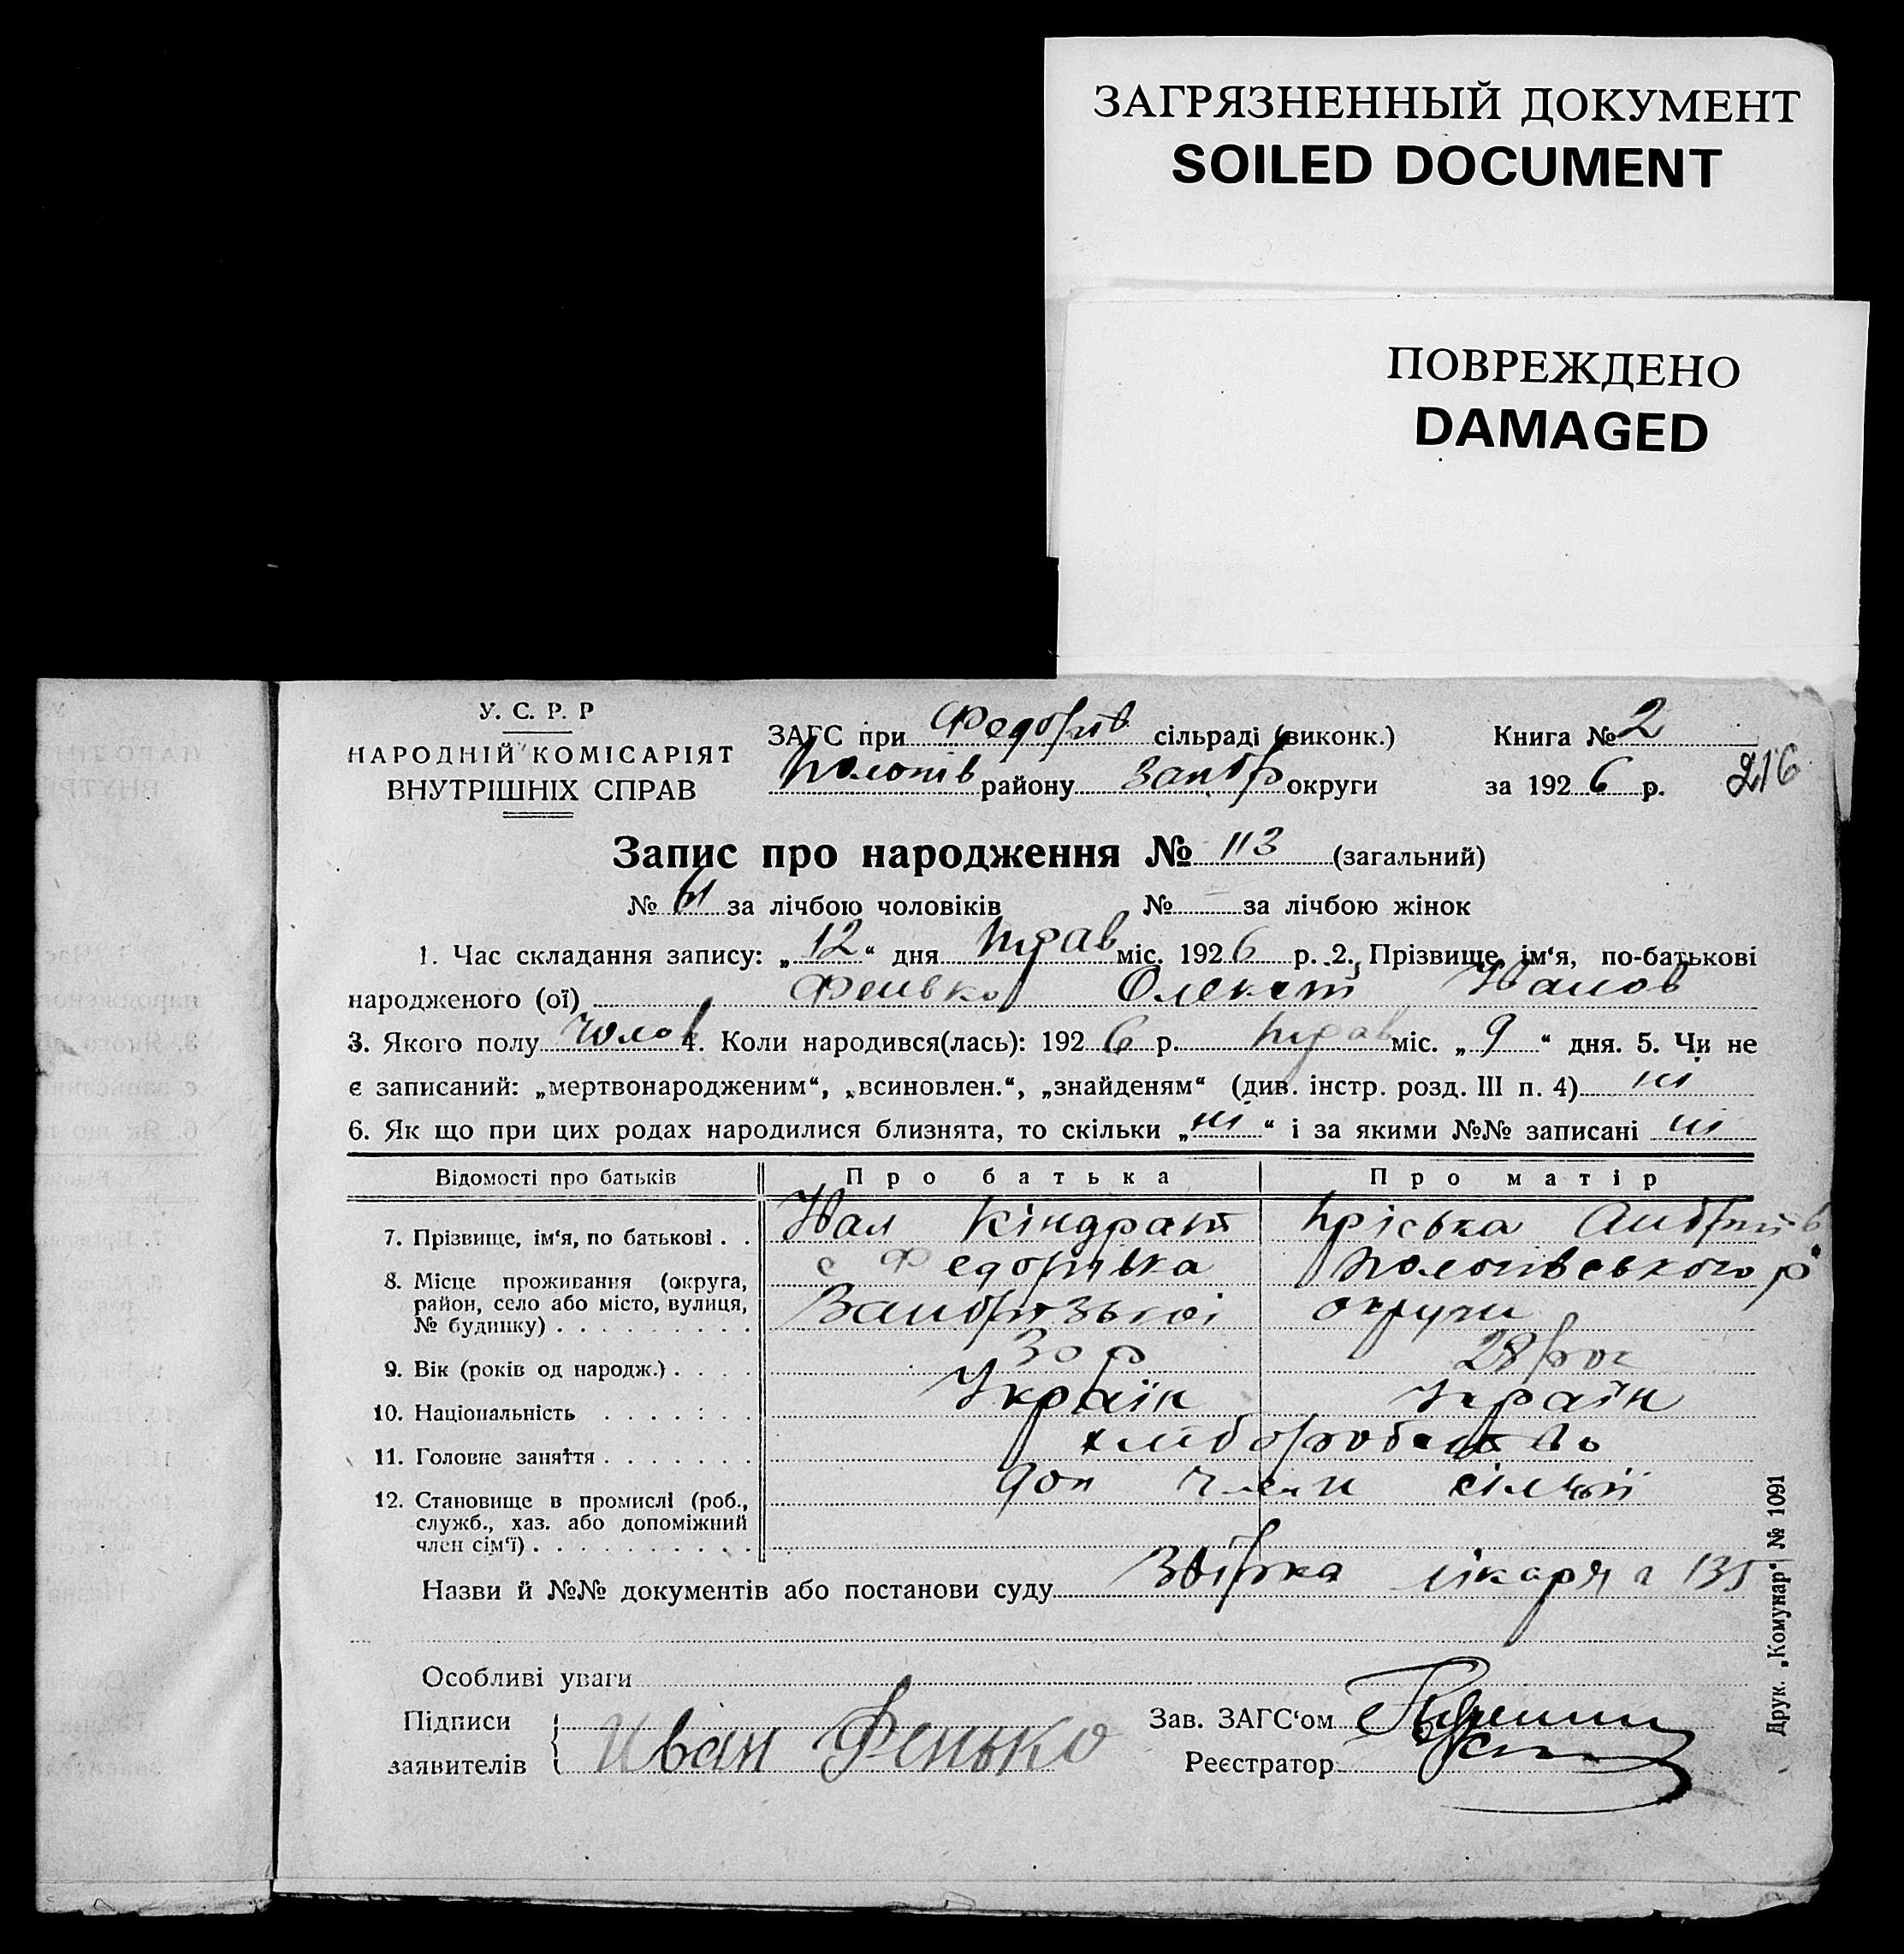 ЗАГРЯЗНЕННЫЙ ДОКУМЕНТ
SOILED DOCUMENT
ПОВРЕЖДЕНО
DAMAGED
У. С. Р. Р
НАРОДНІЙ КОМІСАРІЯТ
ВНУТРІШНІХ СПРАВ
ЗАГС при Федорів сільраді (виконк.)
Пологів району Запор округи
Книга № 2
за 1926 р.
216
Запис про народження № 113 (загальний)
№ 61 за лічбою чоловіків № – за лічбою жінок
1. Час складання запису: „12“ дня трав міс. 1926 р. 2. Прізвище, ім‘я, по-батькові
народженого (ої) Фенько Олексій Іванов
3. Якого полу Чолов 4. Коли народився(лась): 1926 р. трав міс. „9“ дня. 5. Чи не
є записаний: „мертвонародженим“, „всиновлен.“, „знайденям“ (див. інстр. розд. III п. 4) ні
6. Як що при цих родах народилися близнята, то скільки „ні“ і за якими №№ записані ні
Відомості про батьків Про батька Про матір
7. Прізвище, ім‘я, по батькові . . Іван Кіндрат Пріська Андріїв
8. Місце проживання (округа, район, село або місто, вулиця, № будинку) с Федорівка Пологівського р
Запорізької округи
9. Вік (років од народж.) . . . . 30 р 28 рог
10. Національність Україн Україн
11. Головне заняття хліборобство
12. Становище в промислі (роб., служб., хаз. або допоміжний член сім‘ї) доп член сім'ї
Назви й №№ документів або постанови суду лікаря 135
Особливі уваги
Підписи
заявителів
Иван Фенько
Зав. ЗАГС‘ом
Реєстратор
Друк. „Комунар“ № 1091